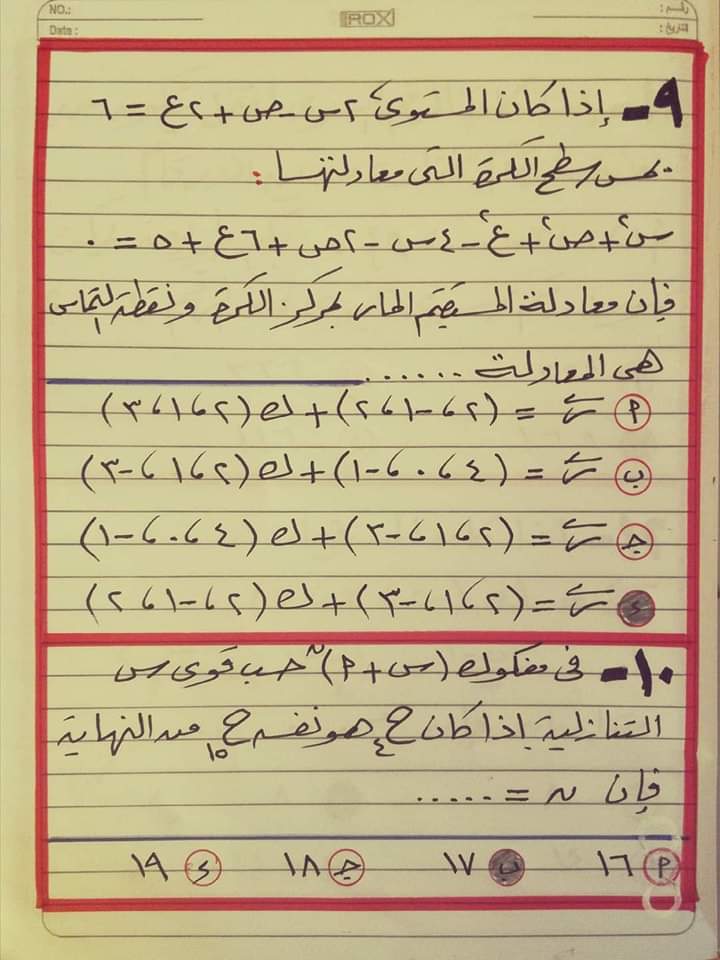 NO.:
Date :
ROX
التاريخ :
٩- إذا كان المستوى ٢س - ص + ٢ع = ٦
يمس سطح الكرة التى معادلتها :
س² + ص² + ع² - ٤س - ٢ص + ٦ع + ٥ = ٠
فإن معادلة المستقيم المار بمركز الكرة ونقطة التماس
هى المعادلة ......
(أ) ر = (٢، -١، ٢) + ك(٢، ١، ٣)
(ب) ر = (٤، ٠، -١) + ك(٢، ١، -٣)
(ج) ر = (٢، ١، -٣) + ك(٤، ٠، -١)
(د) ر = (٢، ١، -٣) + ك(٢، -١، ٢)
١٠- فى مفكوك (س + أ)ⁿ حسب قوى س
التنازلية إذا كان ح٤ هو نفسه ح١٥ من النهاية
فإن ن = ......
(أ) ١٦ (ب) ١٧ (ج) ١٨ (د) ١٩